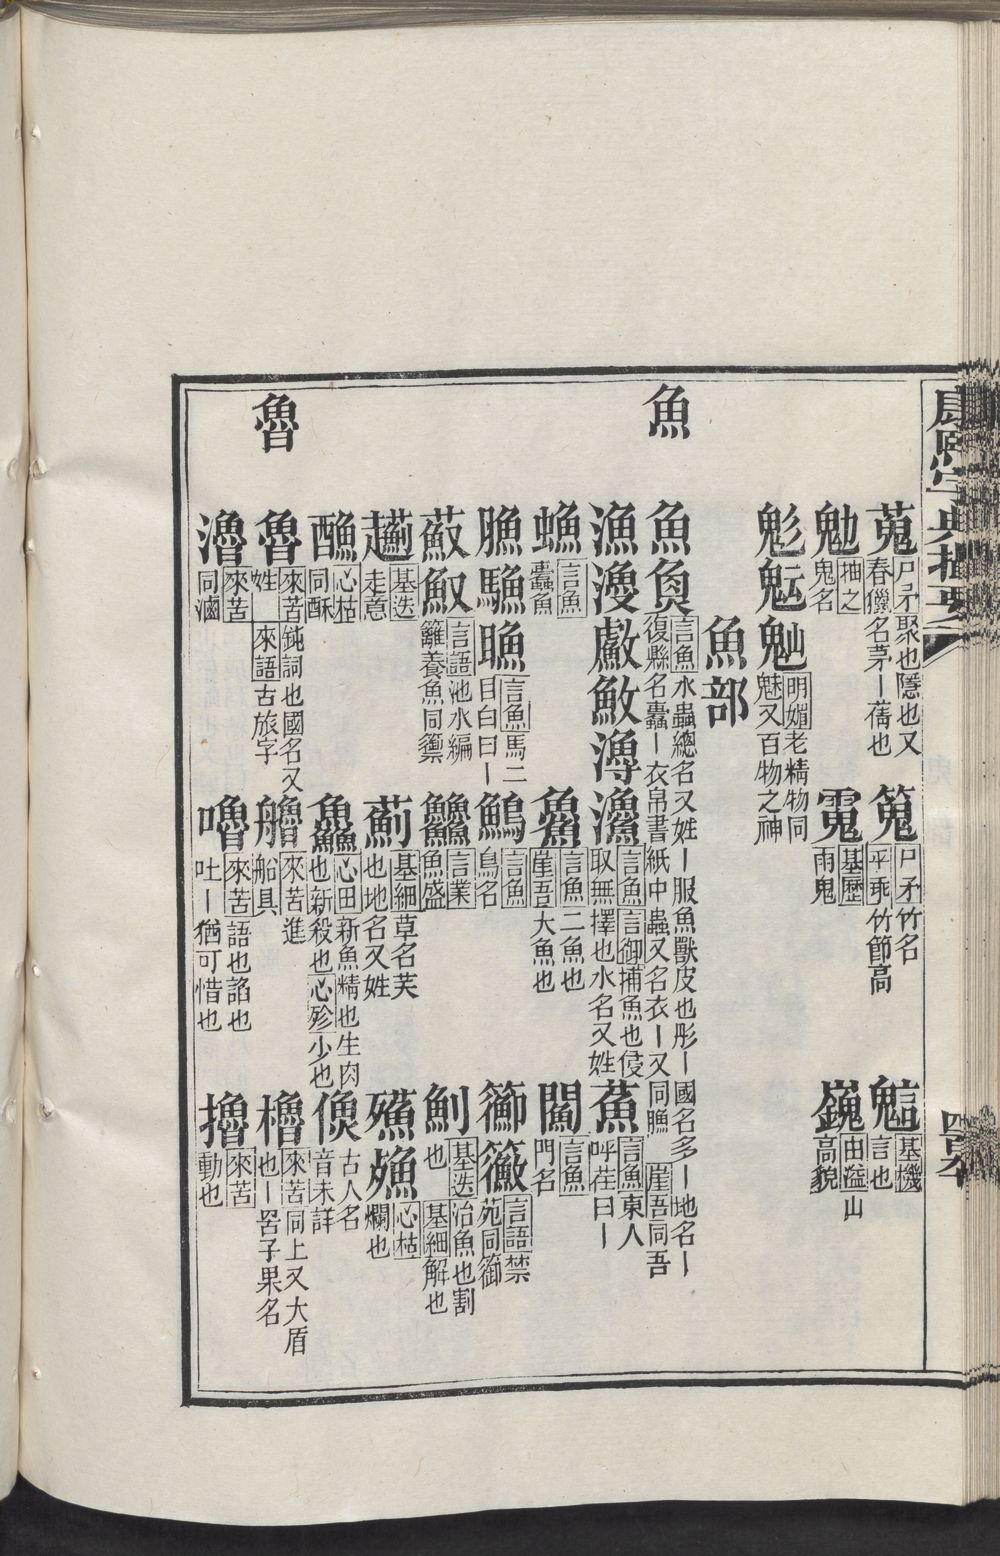 康熙字典撮要
蒐 尸矛 聚也隱也又春獵名茅一蒨也 䈭 尸矛 竹名 平乖 竹節高 基機 言也
鬼名 抽之 基歷 雨鬼 巍 由溢 山高貌
魅 明媚 老精物同魅又百物之神
魚部
魚
魚 言魚 水蟲總名又姓一服魚獸皮也彤一國名多一地名一復縣名蠹一衣帛書紙中蟲又名衣一又同䲣 崖吾 同吾
漁 𩼪 言魚 言御 捕魚也侵取無擇也水名又姓 言魚 東人呼荏曰一
言魚 蠹魚 䲆 言魚 二魚也 崖吾 大魚也 言魚 門名
言魚 馬二目白曰一 言魚 鳥名 籞 言語 禁苑同御
言語 池水編籬養魚同籞 言業 魚盛 基迭 治魚也割也 基細 解也
基迭 走意 薊 基細 草名芙也地名又姓 心枯 爛也
心枯 同酥 鱻 心田 新魚精也生肉也新殺也 心殄 少也 古人名音未詳
魯
魯 來苦 鈍詞也國名又姓 來語 古旅字 艪 來苦 進船具 櫓 來苦 同上又大盾也一罟子果名
澛 來苦 同滷 嚕 來苦 語也謟也吐一猶可惜也 擼 來苦 動也